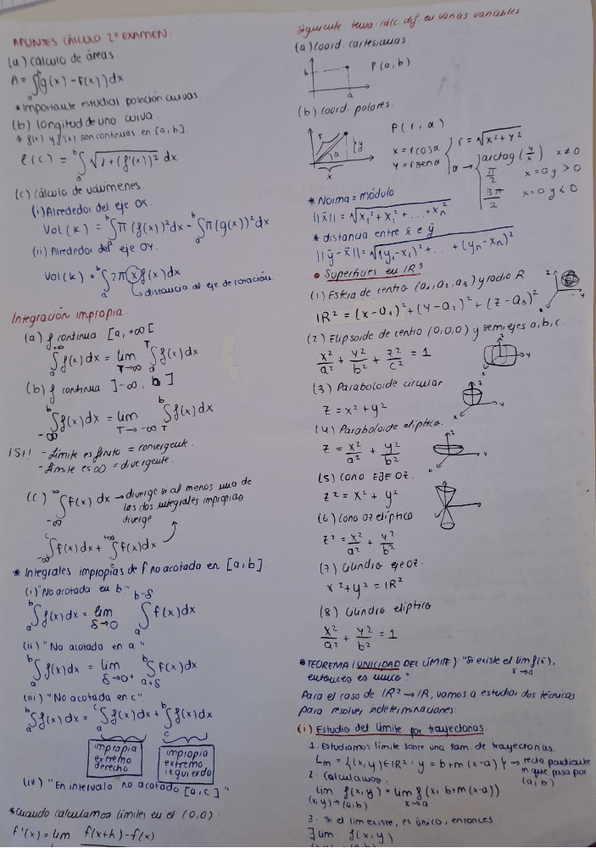 APUNTES CÁLCULO 2º EXAMEN.
(a) cálculo de áreas
A = ∫ₐᵇ g(x) - f(x)) dx
* Importante estudiar posición curvas.
(b) longitud de una curva.
* f(x) y f'(x) son continuas en [a,b].
l(C) = ∫ₐᵇ √(1+(f'(x))²) dx
(c) cálculo de volúmenes.
(i) Alrededor del eje OX.
Vol(K) = ∫ₐᵇ π(f(x))² dx - ∫ₐᵇ π(g(x))² dx
(ii) Alrededor del eje OY.
Vol(K) = ∫ₐᵇ 2π x f(x) dx
↳ distancia al eje de rotación
Integración impropia.
(a) f continua [a,+∞[
∫ₐ^+∞ f(x) dx = lim T→∞ ∫ₐᵀ f(x) dx
(b) f continua ]-∞, b]
∫_-∞ᵇ f(x) dx = lim T→-∞ ∫_Tᵇ f(x) dx
¡Si! - Límite es finito = convergente.
- Límite es ∞ = divergente.
(c) ∫_-∞^∞ f(x) dx → diverge si al menos una de
las dos integrales impropias
diverge
∫_-∞^c f(x) dx + ∫_c^+∞ f(x) dx
* Integrales impropias de f no acotada en [a,b].
(i) "No acotada en b"
∫ₐᵇ f(x) dx = lim δ→0 ∫ₐ^b-δ f(x) dx
(ii) "No acotada en a"
∫ₐᵇ f(x) dx = lim δ→0+ ∫_a+δ^b f(x) dx
(iii) "No acotada en c"
∫ₐᵇ f(x) dx = ∫ₐᶜ f(x) dx + ∫_cᵇ f(x) dx
impropia extremo derecho
impropia extremo izquierdo
(iv) "En intervalo no acotado [a,c]"
* Cuando calculamos límites en el (0,0)
f'(x) = lim f(x+h) - f(x)
Siguiente tema: cálc dif en varias variables.
(a) Coord. cartesianas.
b
a
P(a,b)
(b) Coord. polares.
P(r,α)
x = r cos α
y = r sen α
r = √(x²+y²)
α → arctag(y/x) x≠0
π/2 x=0 y>0
3π/2 x=0 y<0
* Norma = módulo
||x̄|| = √(x₁²+x₂²+...+xₙ²)
* distancia entre x̄ e ȳ
||ȳ-x̄|| = √((y₁-x₁)²+...+(yₙ-xₙ)²)
• Superficies en IR³
(1) Esfera de centro (a₁,a₂,a₃) y radio R.
IR² = (x-a₁)² + (y-a₂)² + (z-a₃)²
(2) Elipsoide de centro (0,0,0) y semiejes a,b,c.
x²/a² + y²/b² + z²/c² = 1
(3) Paraboloide circular
z = x²+y²
(4) Paraboloide elíptico
z = x²/a² + y²/b²
(5) Cono EJE OZ.
z² = x² + y²
(6) Cono OZ elíptico
z² = x²/a² + y²/b²
(7) Cilindro eje OZ.
x²+y² = IR²
(8) Cilindro elíptico
x²/a² + y²/b² = 1
• TEOREMA (UNICIDAD DEL LÍMITE): "Si existe el lim f(x̄),
entonces es único"
Para el caso de IR²→IR, vamos a estudiar dos técnicas
para resolver indeterminaciones:
(i) Estudio del límite por trayectorias
1. Estudiamos límite sobre una fam. de trayectorias.
Lm = {(x,y)∈IR² · y = b+m(x-a)} → recta pendiente
m que pasa por
(a,b)
2. Calculamos.
lim (x,y)→(a,b) f(x,y) = lim x→a f(x, b+m(x-a))
3. Si el lim existe, es único, entonces
∃ lim f(x,y)